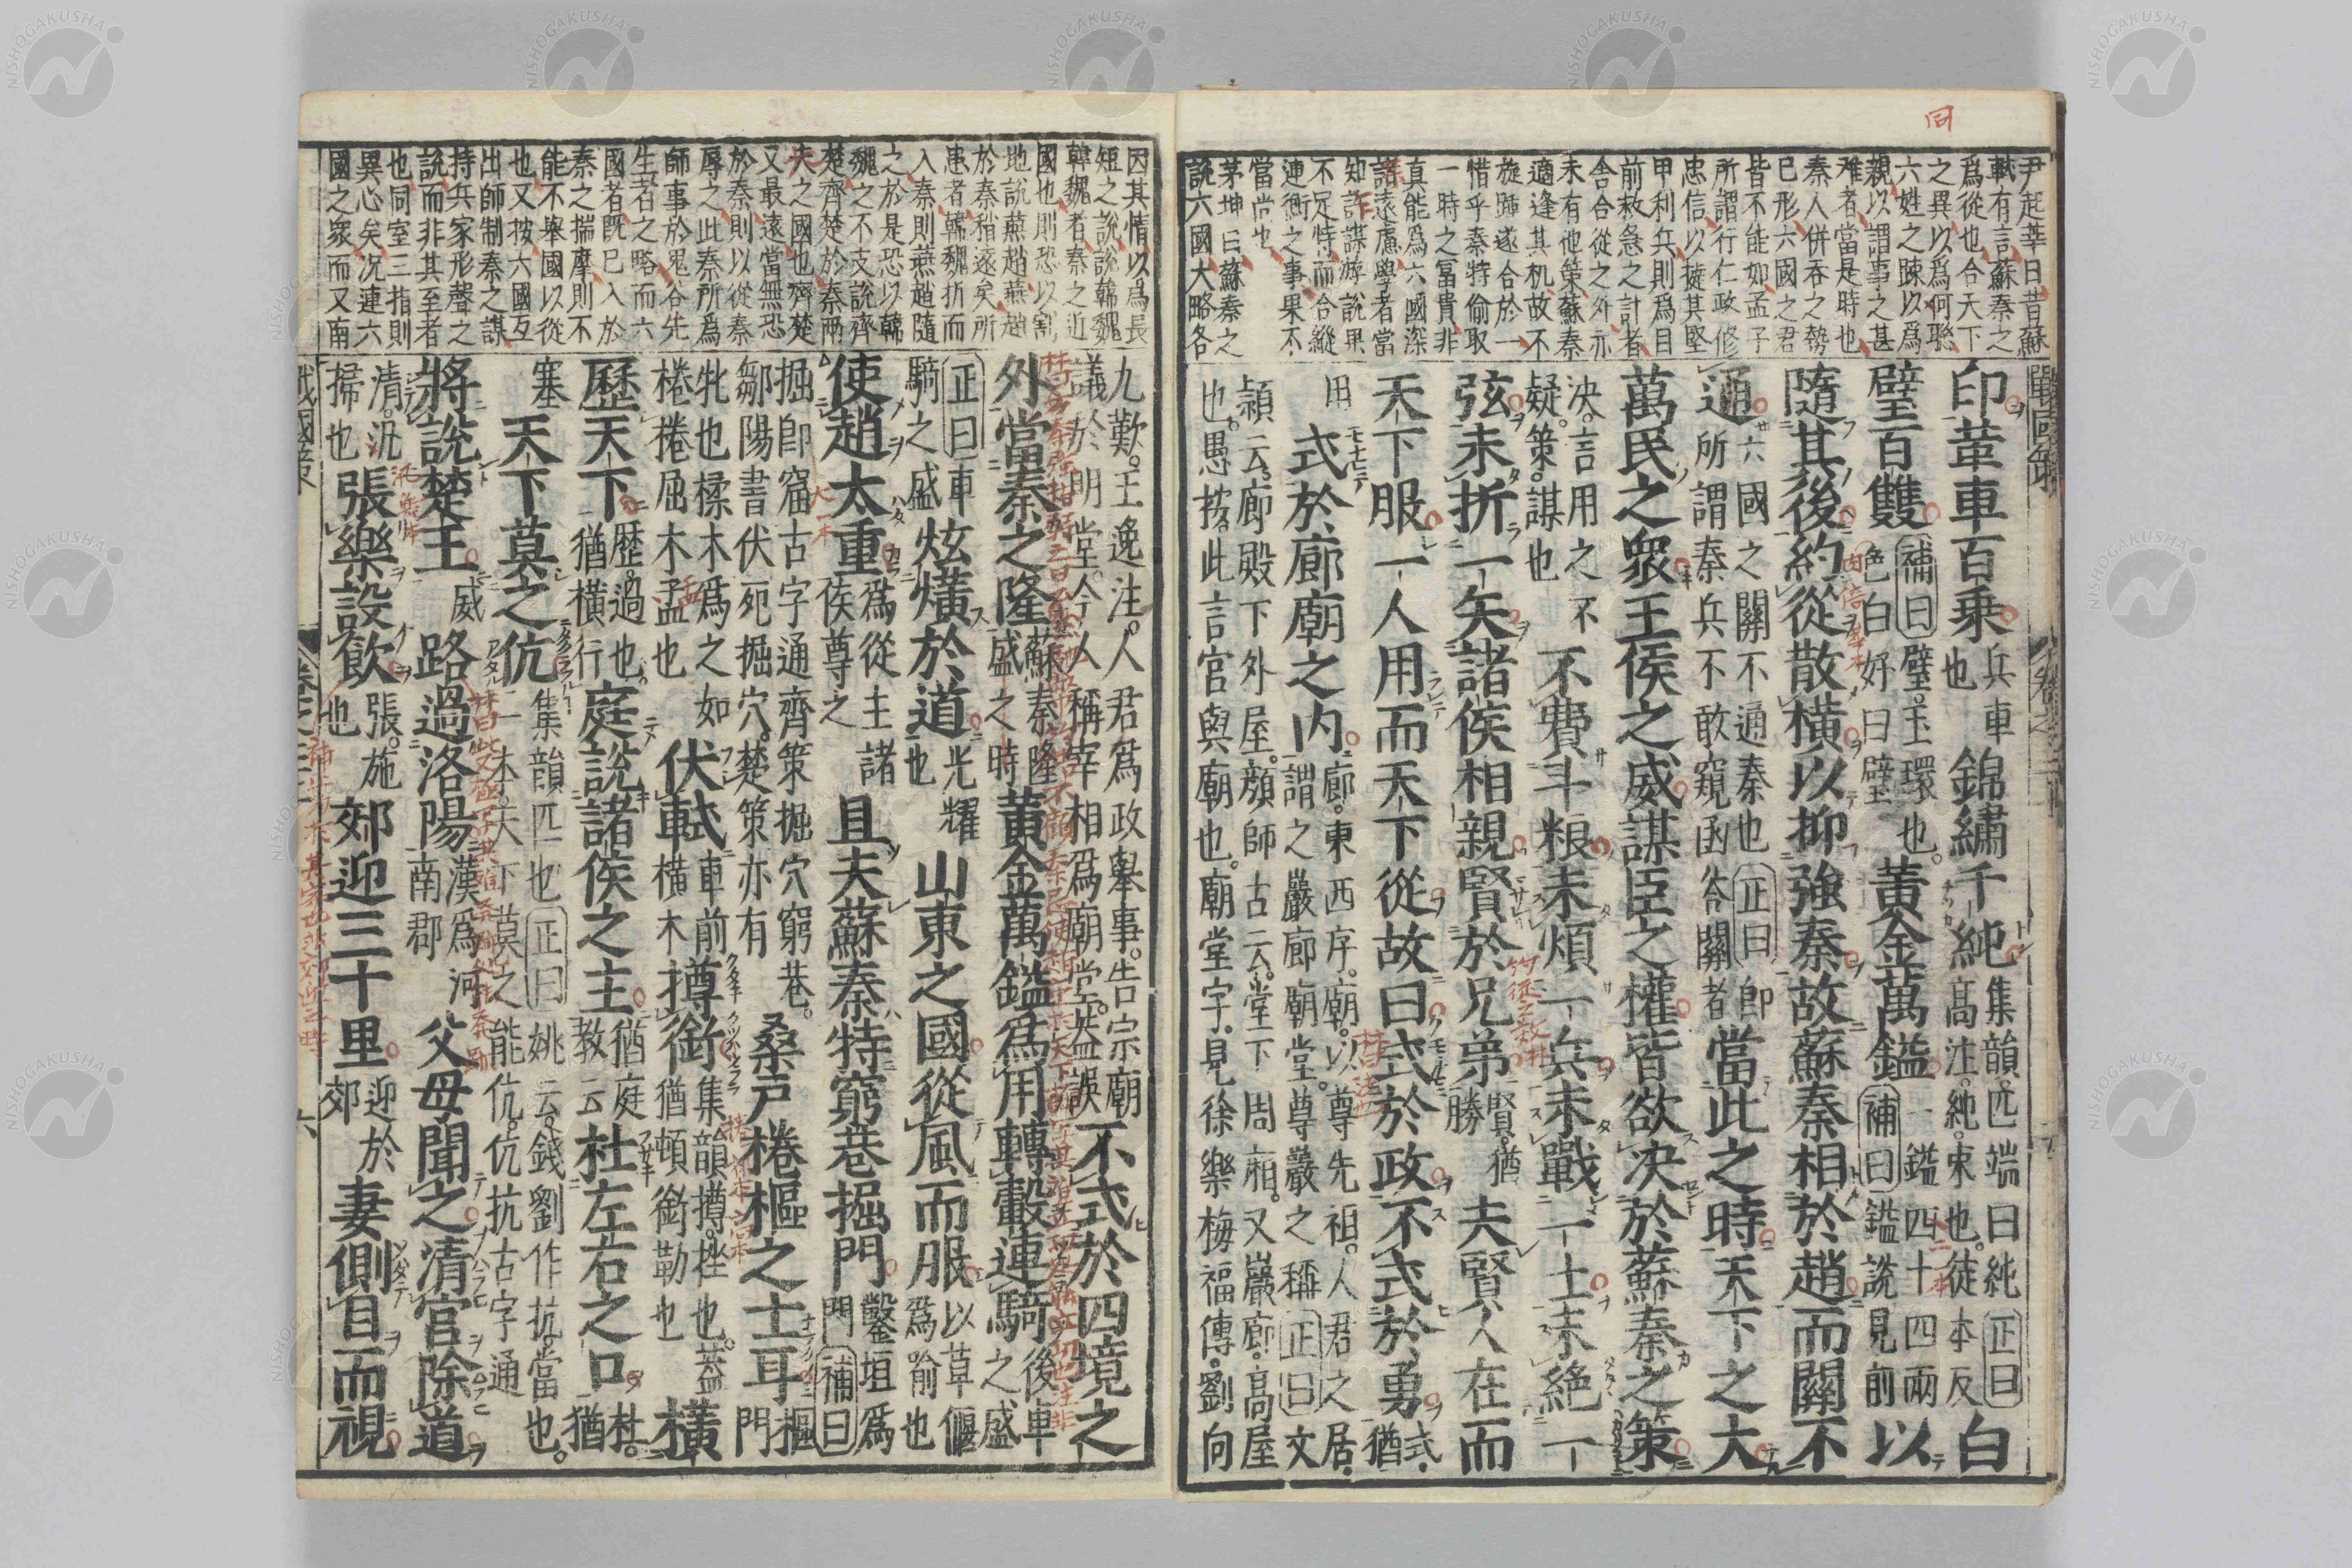 尹起莘曰昔蘇
軾有言蘇秦之
爲從也合天下
之異以爲何聮
六姓之踈以爲
親以謂事之甚
难者當是時也
秦人併吞之勢
已形六國之君
皆不能如孟子
所謂行仁政修
忠信以撻其堅
甲利兵則爲目
前救急之計者
舎合從之外亦
未有他策蘇秦
適逢其机故不
旋踵遂合於一
惜乎秦特偷取
一時之冨貴非
真能爲六國深
諸遠慮學者當
知許謀游說果
不足恃而合縱
連衡之事果不
當尚也
茅坤曰蘇秦之
說六國大略各
印革車百乗兵車也錦繡千純集韻匹端曰純正曰高注純束也徒本反白
璧百雙補曰璧玉環也色白好曰璧黄金萬鎰一鎰四十四兩補曰鎰說見前以
隨其後約從散横以抑強秦故蘇秦相於趙而關不
通六國之關不通秦也正曰即所謂秦兵不敢窺函谷關者當此之時天下之大
萬民之衆王侯之威謀臣之權皆欲决於蘇秦之策
决言用之不疑策謀也不費斗粮未煩一兵未戰一士未絶一
弦未折一矢諸侯相親賢於兄弟賢猶勝夫賢人在而
天下服一人用而天下從故曰式於政不式於勇式猶
用式於廊廟之内廊東西序廟以尊先祖人君之居謂之嚴廊廟堂尊嚴之稱正曰文
穎云廊殿下外屋顔師古云堂下周廂又巖廊高屋
也愚按此言官與廟也廟堂字見徐樂梅福傳劉向
戰國策
因其情以爲長
短之說說韓魏
韓魏者秦之近
國也則恐以割
地說燕趙燕趙
於秦稍逐矣所
患者韓魏折而
入秦則燕趙隨
之於是恐以韓
魏之不支說齊
楚齊楚於秦兩
大之國也齊楚
又最遠當無恐
於秦則以從秦
辱之此秦所爲
師事於鬼谷先
生者之略而六
國者既已入於
秦之揣摩則不
能不舉國以從
也又按六國互
出師制秦之謀
持兵家形聲之
說而非其至者
也同室三指則
異心矣况連六
國之衆而又南
九歎王逸注人君爲政舉事告宗廟議於明堂今人稱宰相爲廟堂益誤不式於四境之
外當秦之隆蘇秦隆盛之時黄金萬鎰爲用轉轂連騎後車之盛
正曰車騎之盛炫熿於道光耀也山東之國從風而服以草偃爲喻也
使趙太重爲從主諸侯尊之且夫蘇秦特窮巷掘門鑿垣爲門補曰
掘卽窟古字通齊策掘穴窮巷鄒陽書伏死掘穴楚策亦有桑戶棬樞之士耳樞門
牝也揉木爲之如棬棬屈木孟也伏軾車前横木撙銜集韻撙挫也益猶頓銜勒也横
歷天下歷過也猶横行庭說諸侯之主猶庭教云杜左右之口杜猶
塞天下莫之伉集韻匹也正曰姚云錢劉作抗當也一本天下莫之能伉伉抗古字通
將說楚王威路過洛陽漢爲河南郡父母聞之清宫除道
清汛掃也張樂設飲張施也郊迎三十里迎於郊妻側目而視
戰國策
六
同
NISHOGAKUSHA